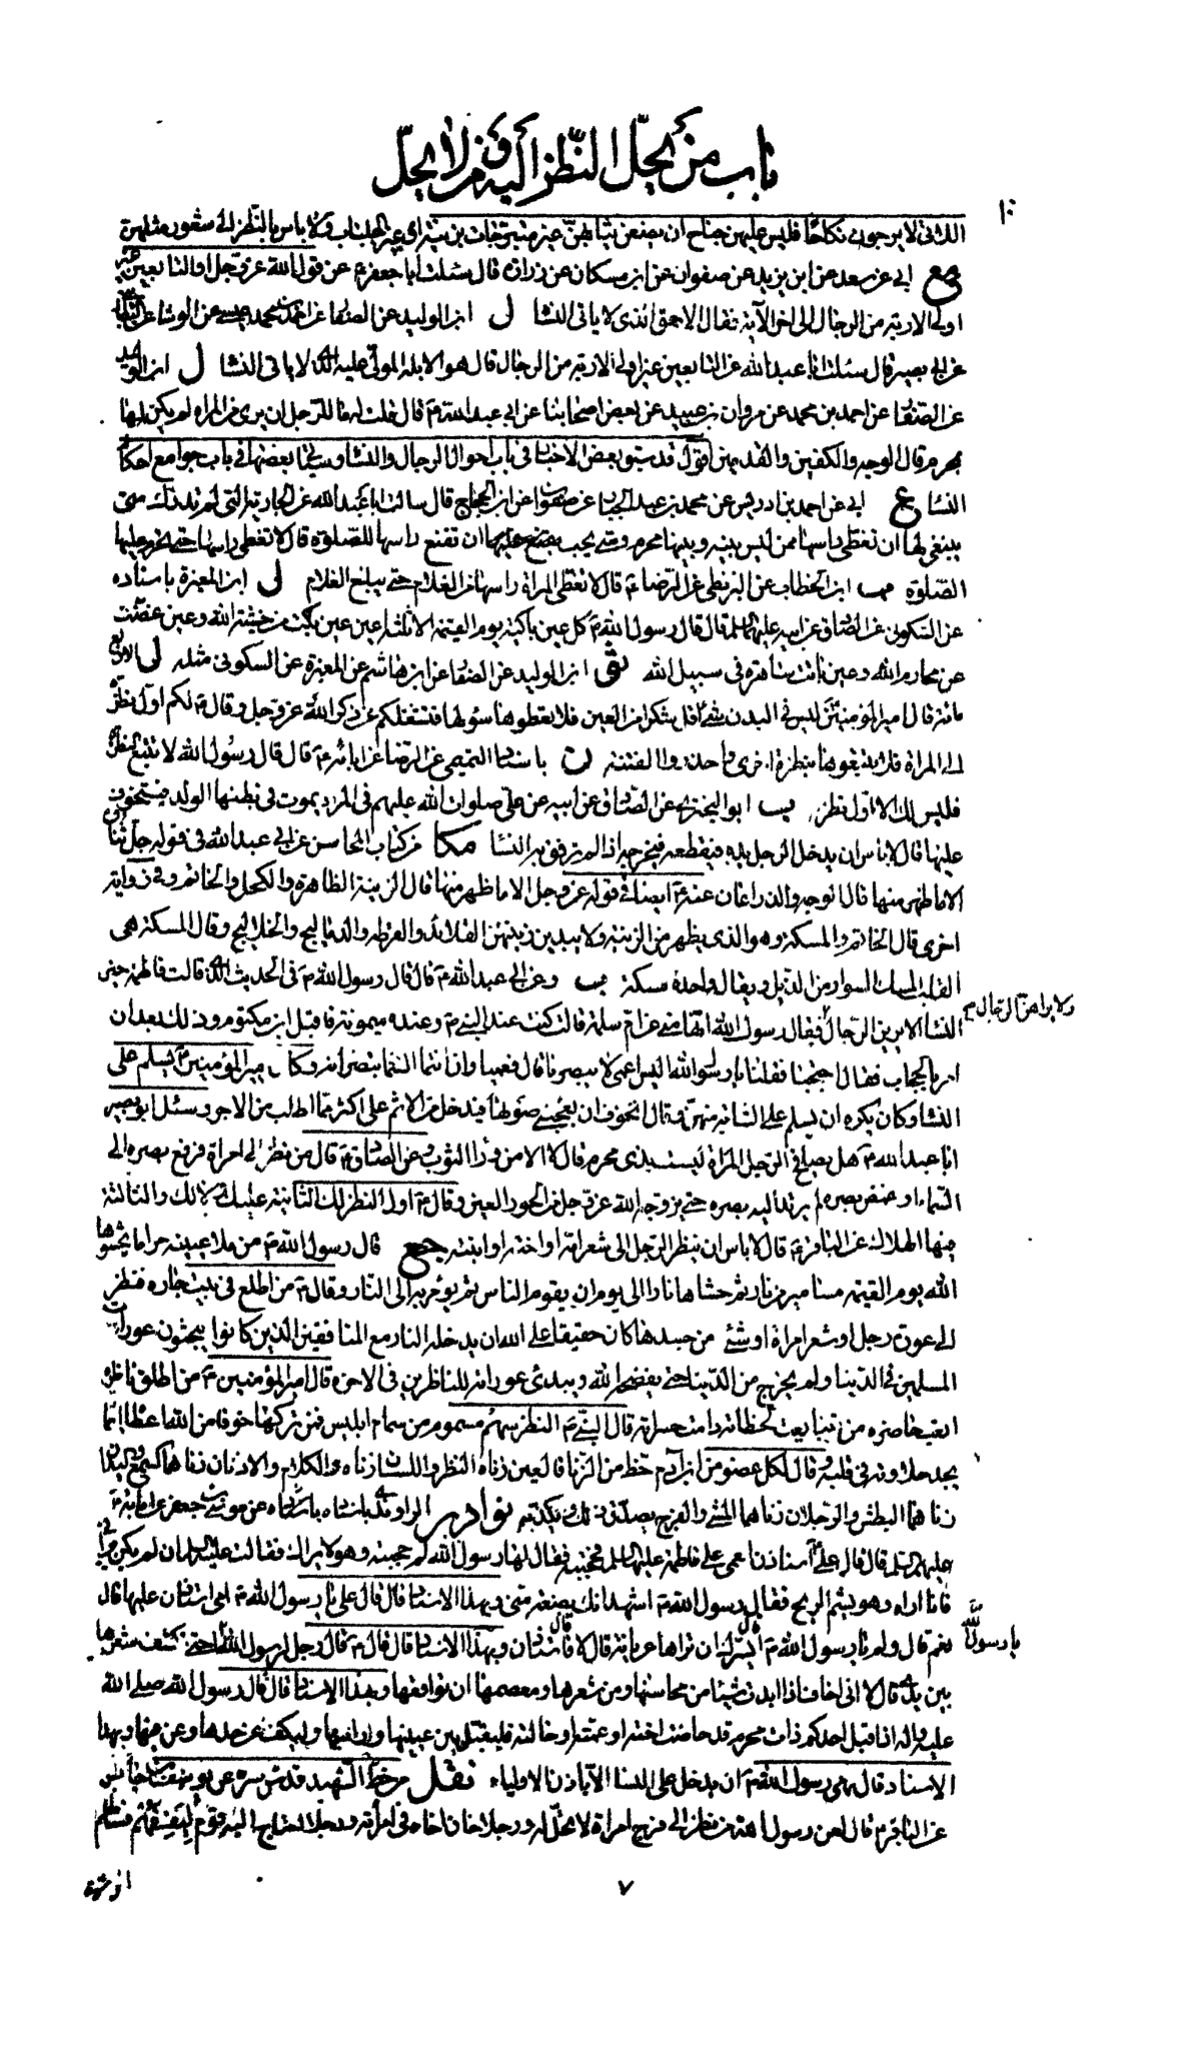 ١٠
باب من يحلّ النّظر اليه ومن لا يحلّ
اللاتي لا يرجون نكاحًا فليس عليهن جناح ان يضعن ثيابهنّ غير متبرجات بزينة اي غير الجلباب ولا باس بالنظر الى شعور مثلهن
مع ابي عن سعد عن ابن يزيد عن صفوان عن ابن مسكان عن زرارة قال سئلت ابا جعفر ع عن قول الله عز وجل او التابعين غير
اولى الاربة من الرجال الى اخر الآية فقال الاحمق الذى لا ياتى النسا ل ابن الوليد عن الصفا عن احمد بن محمد بن عيسى عن الوشا عن
عن ابي بصير قال سئلت ابا عبد الله عن التابعين غير اولى الاربة من الرجال قال هو الابله المولّى عليه الذى لا ياتى النسا ل ابن الوليد
عن الصفا عن احمد بن محمد عن مروان بن عبيد عن بعض اصحابنا عن ابي عبد الله م قال قلت له ما للرجل ان يرى من المراة لم يكن لها
بمحرم قال الوجه والكفين والقدمين اقول قد سبق بعض الاخبار فى باب احوال الرجال والنسا وسياتى بعضها فى باب جوامع احكام
النسا ع ابي عن احمد بن ادريس عن محمد بن عبد الجبار عن صفوان عن ابن الحجاج قال سالت ابا عبد الله عن الجارية التى لم تدرك متى
ينبغى لها ان تغطى راسها ممن ليس بينه وبينها محرم ومتى يجب عليها ان تقنع راسها للصلوة قال لا تغطى راسها حتى تحرم عليها
الصلوة ب ابن الخطاب عن البزنطى عن الرضا م قال لا تغطى المراة راسها من الغلام حتى يبلغ الغلام ل ابن المغيرة باسناده
عن السكونى عن الصادق عن ابيه عليهما السلم قال قال رسول الله م كل عين باكية يوم القيمة الا ثلثة اعين عين بكت من خشية الله وعين غضت
عن محارم الله وعين باتت ساهرة فى سبيل الله ثو ابن الوليد عن الصفا عن ابن هاشم عن المغيرة عن السكونى مثله ل الاربع
مائة قال امير المؤمنين ليس فى البدن شئ اقل شكرا من العين فلا تعطوها سؤلها فتشغلكم عن ذكر الله عز وجل وقال م لكم اول نظرة
الى المراة فلا تتبعوها بنظرة اخرى واحذروا الفتنة ن باسنا التميمى عن الرضا عن ابائه م قال قال رسول الله لا تتبع النظرة
فليس لك الا اول نظرة ب ابو البخترى عن الصادق عن ابيه عن على صلوات الله عليهم فى المراة يموت فى بطنها الولد فيتخوف
عليها قال لا باس ان يدخل الرجل يده فيقطعه فيخرجه اذا لم ترفق به النسا مكا من كتاب المحاسن عن ابي عبد الله فى قوله جل ثنا
الا ما ظهر منها قال الوجه والذراعان عنه م ايضا فى قوله عز وجل الا ما ظهر منها قال الزينة الظاهرة الكحل والخاتم وفى رواية
اخرى قال الخاتم والمسكة وهو الذى يظهر من الزينة ولا يبدين زينتهن القلائد والقرطة والدماليج والخلاخيل وقال المسكة هى
القلب السوار من الذبل ويقال واحده مسكة وعن ابي عبد الله م قال قال رسول الله م فى الحديث الذى قالت فاطمة خير
النسا الا يرين الرجال فقال رسول الله انها منى عن ام سلمة قالت كنت عند النبى م وعنده ميمونة فاقبل ابن مكتوم وذلك بعد ان
ولا يراهن الرجال م
امر بالحجاب فقال احتجبا فقلنا يا رسول الله اليس اعمى لا يبصرنا قال افعميا وان انتما الستما تبصرانه وكان امير المؤمنين م يسلم على
النسا وكان يكره ان يسلم على الشابة منهن وقال اتخوف ان يعجبنى صوتها فيدخل من الاثم على اكثر مما اطلب من الاجر وسئل ابو بصير
ابا عبد الله م هل يصافح الرجل المراة ليست بذى محرم قال لا الا من وراء الثوب وعن الصادق م قال من نظر الى امراة فرفع بصره الى
السماء او غض بصره لم يرتد اليه بصره حتى يزوجه الله عز وجل من الحور العين وقال م اول النظر لك الثانية عليك لا لك والثالثة
فيها الهلاك عن الباقر م قال لا باس ان ينظر الرجل الى شعر امه او اخته او ابنته جع قال رسول الله م من ملا عينيه حراما يحشوها
الله يوم القيمة مسامير من نار ثم حشاها نارا الى يوم ان يقوم الناس ثم يؤمر به الى النار وقال م من اطلع فى بيت جاره فنظر
الى عورة رجل او شعر امراة او شئ من جسدها كان حقيقا على الله ان يدخله النار مع المنافقين الذين كانوا يبحثون عورات
المسلمين فى الدنيا ولم يخرج من الدنيا حتى يفضحه الله ويبدى عوراته للناظرين فى الاخرة قال امير المؤمنين م من اطلق ناظره
اتعب خاضره من تتابعت لحظاته دامت حسراته قال النبى م النظر سهم مسموم من سهام ابليس فمن تركها خوفا من الله اعطاه ايمانا
يجد حلاوته فى قلبه وقال لكل عضو من ابن آدم حظ من الزنا فالعين زناه النظر واللسان زناه الكلام والاذنان زناهما السمع واليدان
زناهما البطش والرجلان زناهما المشى والفرج يصدق ذلك ويكذبه نوادر الراوندى باسناده عن موسى بن جعفر عن ابائه م
عليهم السلم قال قال على م استاذن اعمى على فاطمة عليها السلم فحجبته فقال لها رسول الله لم حجبته وهو لا يراك فقالت عليها السلم ان لم يكن يرانى
فانا اراه وهو يشم الريح فقال رسول الله م اشهد انك بضعة منى وبهذا الاسناد قال قال على م يا رسول الله م امى استاذن عليها قال
يا رسول الله
نعم قال ولم يا رسول الله م ايسرك ان تراها عريانة قال لا قال فاستاذن وبهذا الاسناد قال قال م قال رجل لرسول الله اختى تكشف شعرها
بين يدى قال لا انى اخاف اذا ابدت شيئا من محاسنها ومن شعرها ومعصمها ان تواقعها وبهذا الاسناد قال قال رسول الله صلى الله
عليه واله اذا قبل احدكم ذات محرم قد حاضت اخته او عمته او خالته فليقبل بين عينيها وراسها وليكف عن خدها وعن فيها وبهذا
الاسناد قال نهى رسول الله م ان يدخل على النسا الا باذن الاولياء نقل من خط الشهيد قدس سره عن يوسف بن جابر
عن الباقر م قال لعن رسول الله من نظر الى فرج امراة لا تحل له ورجلا خان اخاه فى امرأته ورجلا احتاج اليه قوم ليفقههم فسألهم
٧
الرشوة